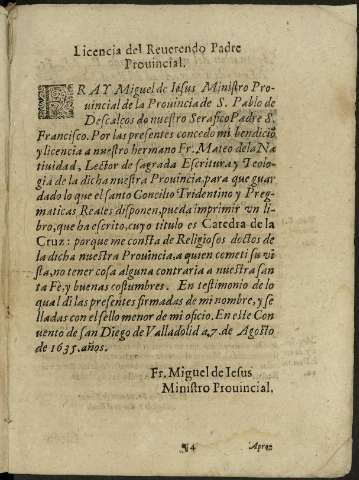 Licencia del Reuerendo Padre
Prouincial.
FRAY Miguel de Iesus Ministro Pro-
uincial de la Prouincia de S. Pablo de
Descalços do nuestro Serafico Padre S.
Francisco. Por las presentes concedo mi bendiciõ
y licencia a nuestro hermano Fr. Mateo de la Na
tiuidad, Lector de sagrada Escritura y Teolo-
gia de la dicha nuestra Prouincia, para que guar
dado lo que el santo Concilio Tridentino y Preg-
maticas Reales disponen, pueda imprimir vn li-
bro, que ha escrito, cuyo titulo es Catedra de la
Cruz: porque me consta de Religiosos doctos de
la dicha nuestra Prouincia, a quien cometi su vi
sta, no tener cosa alguna contraria a nuestra san
ta Fè, y buenas costumbres. En testimonio de lo
qual di las presentes firmadas de mi nombre, y se
lladas con el sello menor de mi oficio. En este Con
uento de san Diego de Valladolid a, 7. de Agosto
de 1635. años.
Fr. Miguel de Iesus
Ministro Prouincial.
¶4
Aproa